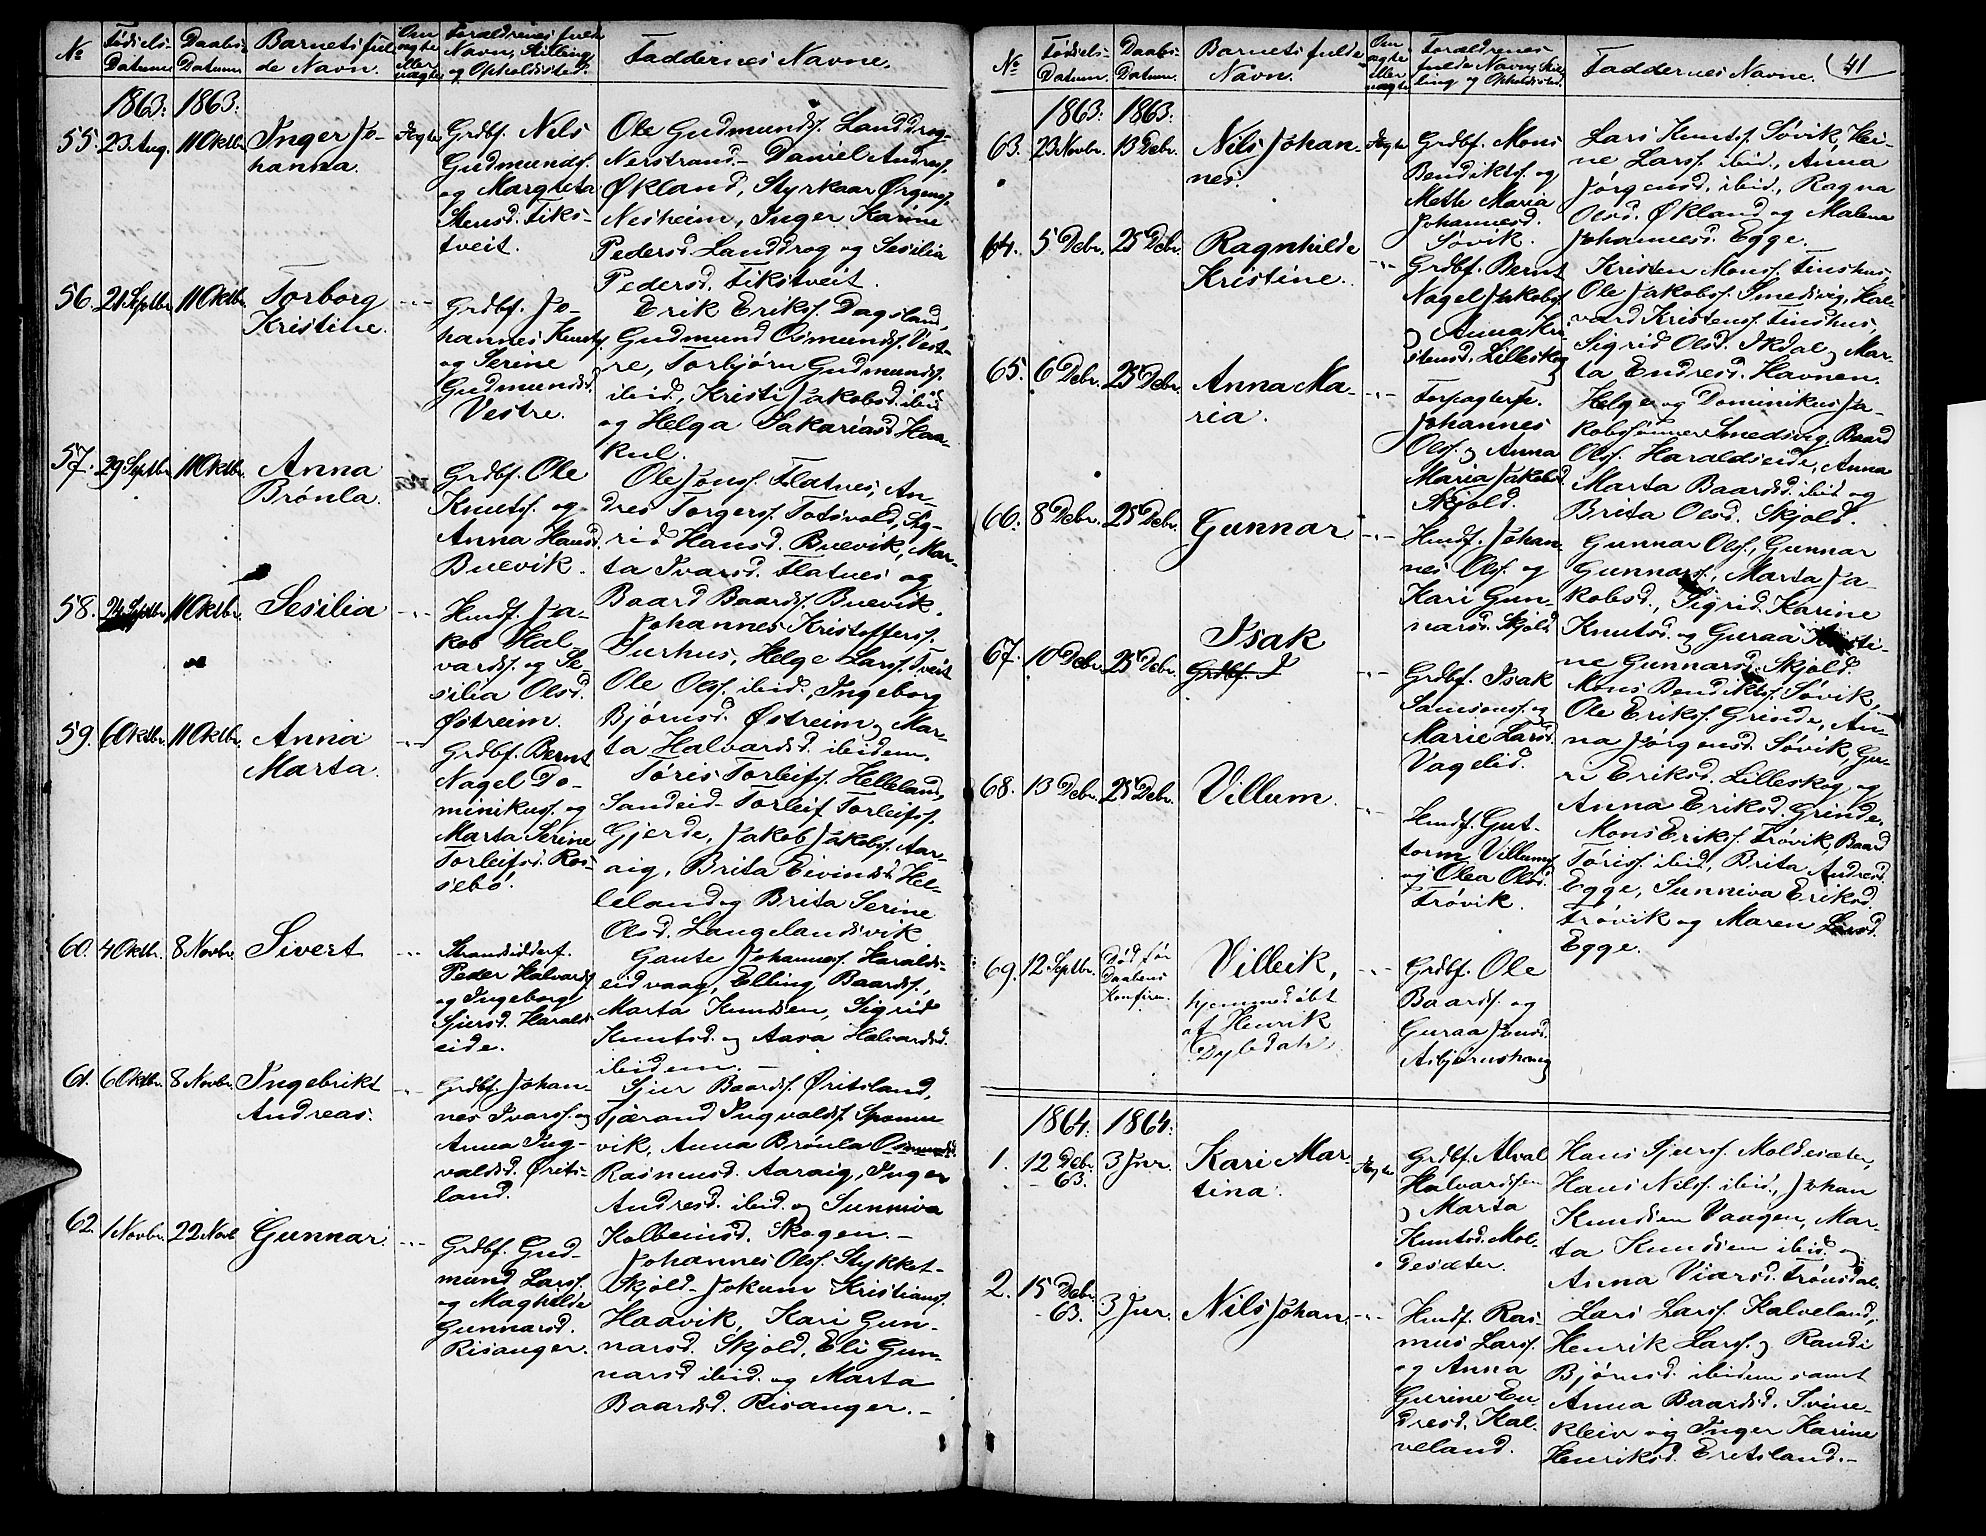 No Fødsels- Datum Daabs- Datum Barnets ful- de Navn. Om ægte eller uægte Forældrenes fulde Navn, Stilling og Opholdssted. Faddernes Navne.
1863: 1863:
55. 23 Aug. 11 Oktbr. Inger Jo-
hanna.
Ægte
Grdbf. Nils
Gudmunds.
og Margreta
Stensd. Tiks-
tveit.
Ole Gudmunds. Landdrog-
Nerstrand - Daniel Andres.
Økland, Styrkaar Ørgens.
Nesheim, Inger Karine
Pedersd. Landdrog og Sesilia
Pedersd. Tikstveit.
56. 21 Septbr. 11 Oktbr. Torborg
Kristine.
Grdbf. Jo-
hannes Knuts.
og Serine
Gudmundsd.
Vestre.
Erik Eriks. Dagsland,
Gudmund Osmunds. Vest-
re, Torbjørn Gudmunds.
ibid, Kristi Jakobsd. ibid
og Helga Sakariasd. Haa-
kul.
57. 29 Septbr. 11 Oktbr. Anna
Brønla.
Grdbf. Ole
Knuts. og
Anna Hansd.
Buevik.
Ole Jons. Flatnes, An-
dres Torgers. Totsvold, Sig-
rid Hansd. Buevik, Mar-
ta Ivarsd. Flatnes og
Baard Baards. Buevik.
58. 24 Septbr. 11 Oktbr. Sesilia
Husmf. Ja-
kob Hal-
vards. og Se-
silia Olsd.
Østreim.
Johannes Kristoffers.
Surhus, Helge Lars. Tveit
Ole Ols. ibid. Ingeborg
Bjørnsd. Østreim og Mar-
ta Halvardsd. ibidem.
59. 6 Oktbr. 11 Oktbr. Anna
Marta.
Grdbf. Bernt
Nagel Do-
minikus. og
Marta Serine
Torleifsd. Ros-
sebø.
Tøris Torleifs. Helleland,
Sandeid - Torleif Torleifs.
Gjerde, Jakob Jakobs. Aar-
aig, Brita Eivindsd. Hel-
leland og Brita Serine
Olsd. Langelandsvik
60. 4 Oktbr. 8 Novbr. Sivert
Strandsidderf.
Peder Halvards.
og Ingeborg
Sjursd. Harald-
eide.
Gaute Johannes. Haralds-
eidvaag, Elling Baards.,
Marta Knudsen, Sigrid
Knutsd. og Aasa Halvardsd.
ibidem. -
61. 6 Oktbr. 8 Novbr. Ingebrikt
Andreas.
Grdbf. Johan-
nes Ivars. og
Anna Ing-
valdsd. Ørits-
land.
Sjur Baards. Øritsland,
Tjærand Ingvalds. Sponne
vik, Anna Brønla Osmundsd.
Rasmusd. Aaraig, Inger
Andresd. ibid. og Sunniva
Kolbeinsd. Skogen. -
62. 1 Novbr. 22 Novb. Gunnar.
Grdbf. Gud-
mund Lars.
og Maghilde
Gunnarsd.
Risanger.
Johannes Ols. Stykket-
Skjold - Jokum Kristians.
Haavik, Kari Gun-
narsd. Skjold, Eli Gun-
narsd ibid. og Marta
Baardsd. Risanger. -
No Fødsels- Datum. Daabs- Datum. Barnets fulde Navn. Om ægte eller uægte Forældrenes fulde Navn, Stil- ling og Opholdssted. Faddernes Navne. 41
1863: 1863:
63. 23 Novbr. 13 Debr. Nils Johan-
nes.
Ægte
Grdbf. Mons
Bendikts. og
Mette Maria
Johannesd.
Søvik.
Lars Knuts. Søvik, Hei-
ne Lars. ibid., Anna
Jørgensd. ibid., Ragna
Olsd. Økland og Malene
Johannesd. Egge.
64. 5 Debr. 25 Debr. Ragnhilde
Kristine.
Grdbf. Bernt
Nagel Jakobs.
og Anna Kri-
stensd. Lilleskog
Kristen Mons. Tinshus,
Ole Jakobs. Smedsvig, Hal-
vard Kristens. Tinshus,
Sigrid Olsd. Ikdal og Mar-
ta Endresd. Havnen.
65. 6 Debr. 25 Debr. Anna Ma-
ria.
Forpagterf.
Johannes
Ols. og Anna
Maria Jakobsd.
Skjold.
Helge og Dominikus Ja-
kobsønner Smedsvig, Baard
Ols. Haraldseide, Anna
Marta Baardsd. ibid og
Brita Olsd. Skjold.
66. 8 Debr. 25 Debr. Gunnar
Husmf. Johan-
nes Ols. og
Kari Gun-
narsd. Skjold
Gunnar Ols., Gunnar
Gunnars., Marta Ja-
kobsd., Sigrid Karine
Knutsd. og Guraa Kristi-
ne Gunnarsd. Skjold.
67. 10 Debr. 25 Debr. Isak
Grdbf. I
Grdbf. Isak
Samsons. og
Marie Larsd.
Vagelid.
Mons Bendikts. Søvik,
Ole Eriks. Grinde, An-
na Jørgensd. Søvik, Gu-
ri Eriksd. Lilleskog, og
Anna Eriksd. Grinde.
68. 13 Debr. 25 Debr. Villum.
Husmf. Gut-
torm Villums.
og Olea Olsd.
Trøvik.
Mons Eriks. Trøvik, Baard
Tøris. ibid, Brita Andresd.
Egge, Sunniva Eriksd.
Trøvik og Maren Larsd.
Egge.
69. 12 Septbr. Død før
Daabens
Konfirm.
Villeik,
hjemmedøbt
af Henrik
Dybdah
Grdbf. Ole
Baards. og
Guraa Jonsd.
Asbjørnshaug
1864: 1864:
1. 12 Debr. 63. 3 Jnr. Kari Mar-
tina.
Ægte
Grdbf. Alval
Halvardsen
og Marta
Knutsd. Mol-
desæter.
Hans Sjurs. Moldesæter,
Hans Nils. ibid., Johan
Knudsen Vaagen, Mar-
ta Knudsen ibid. og
Anna Viarsd. Trønsdal.
2. 15 Debr. 63. 3 Jnr. Nils Johan
Husmf. Ras-
mus Lars.
og Anna
Gurine En-
dresd. Kal-
veland.
Lars Lars. Kalveland,
Henrik Lars. og Randi
Bjørnsd. ibidem samt
Anna Baardsd. Svine-
kleiv og Inger Karine
Henriksd. Eretsland. -